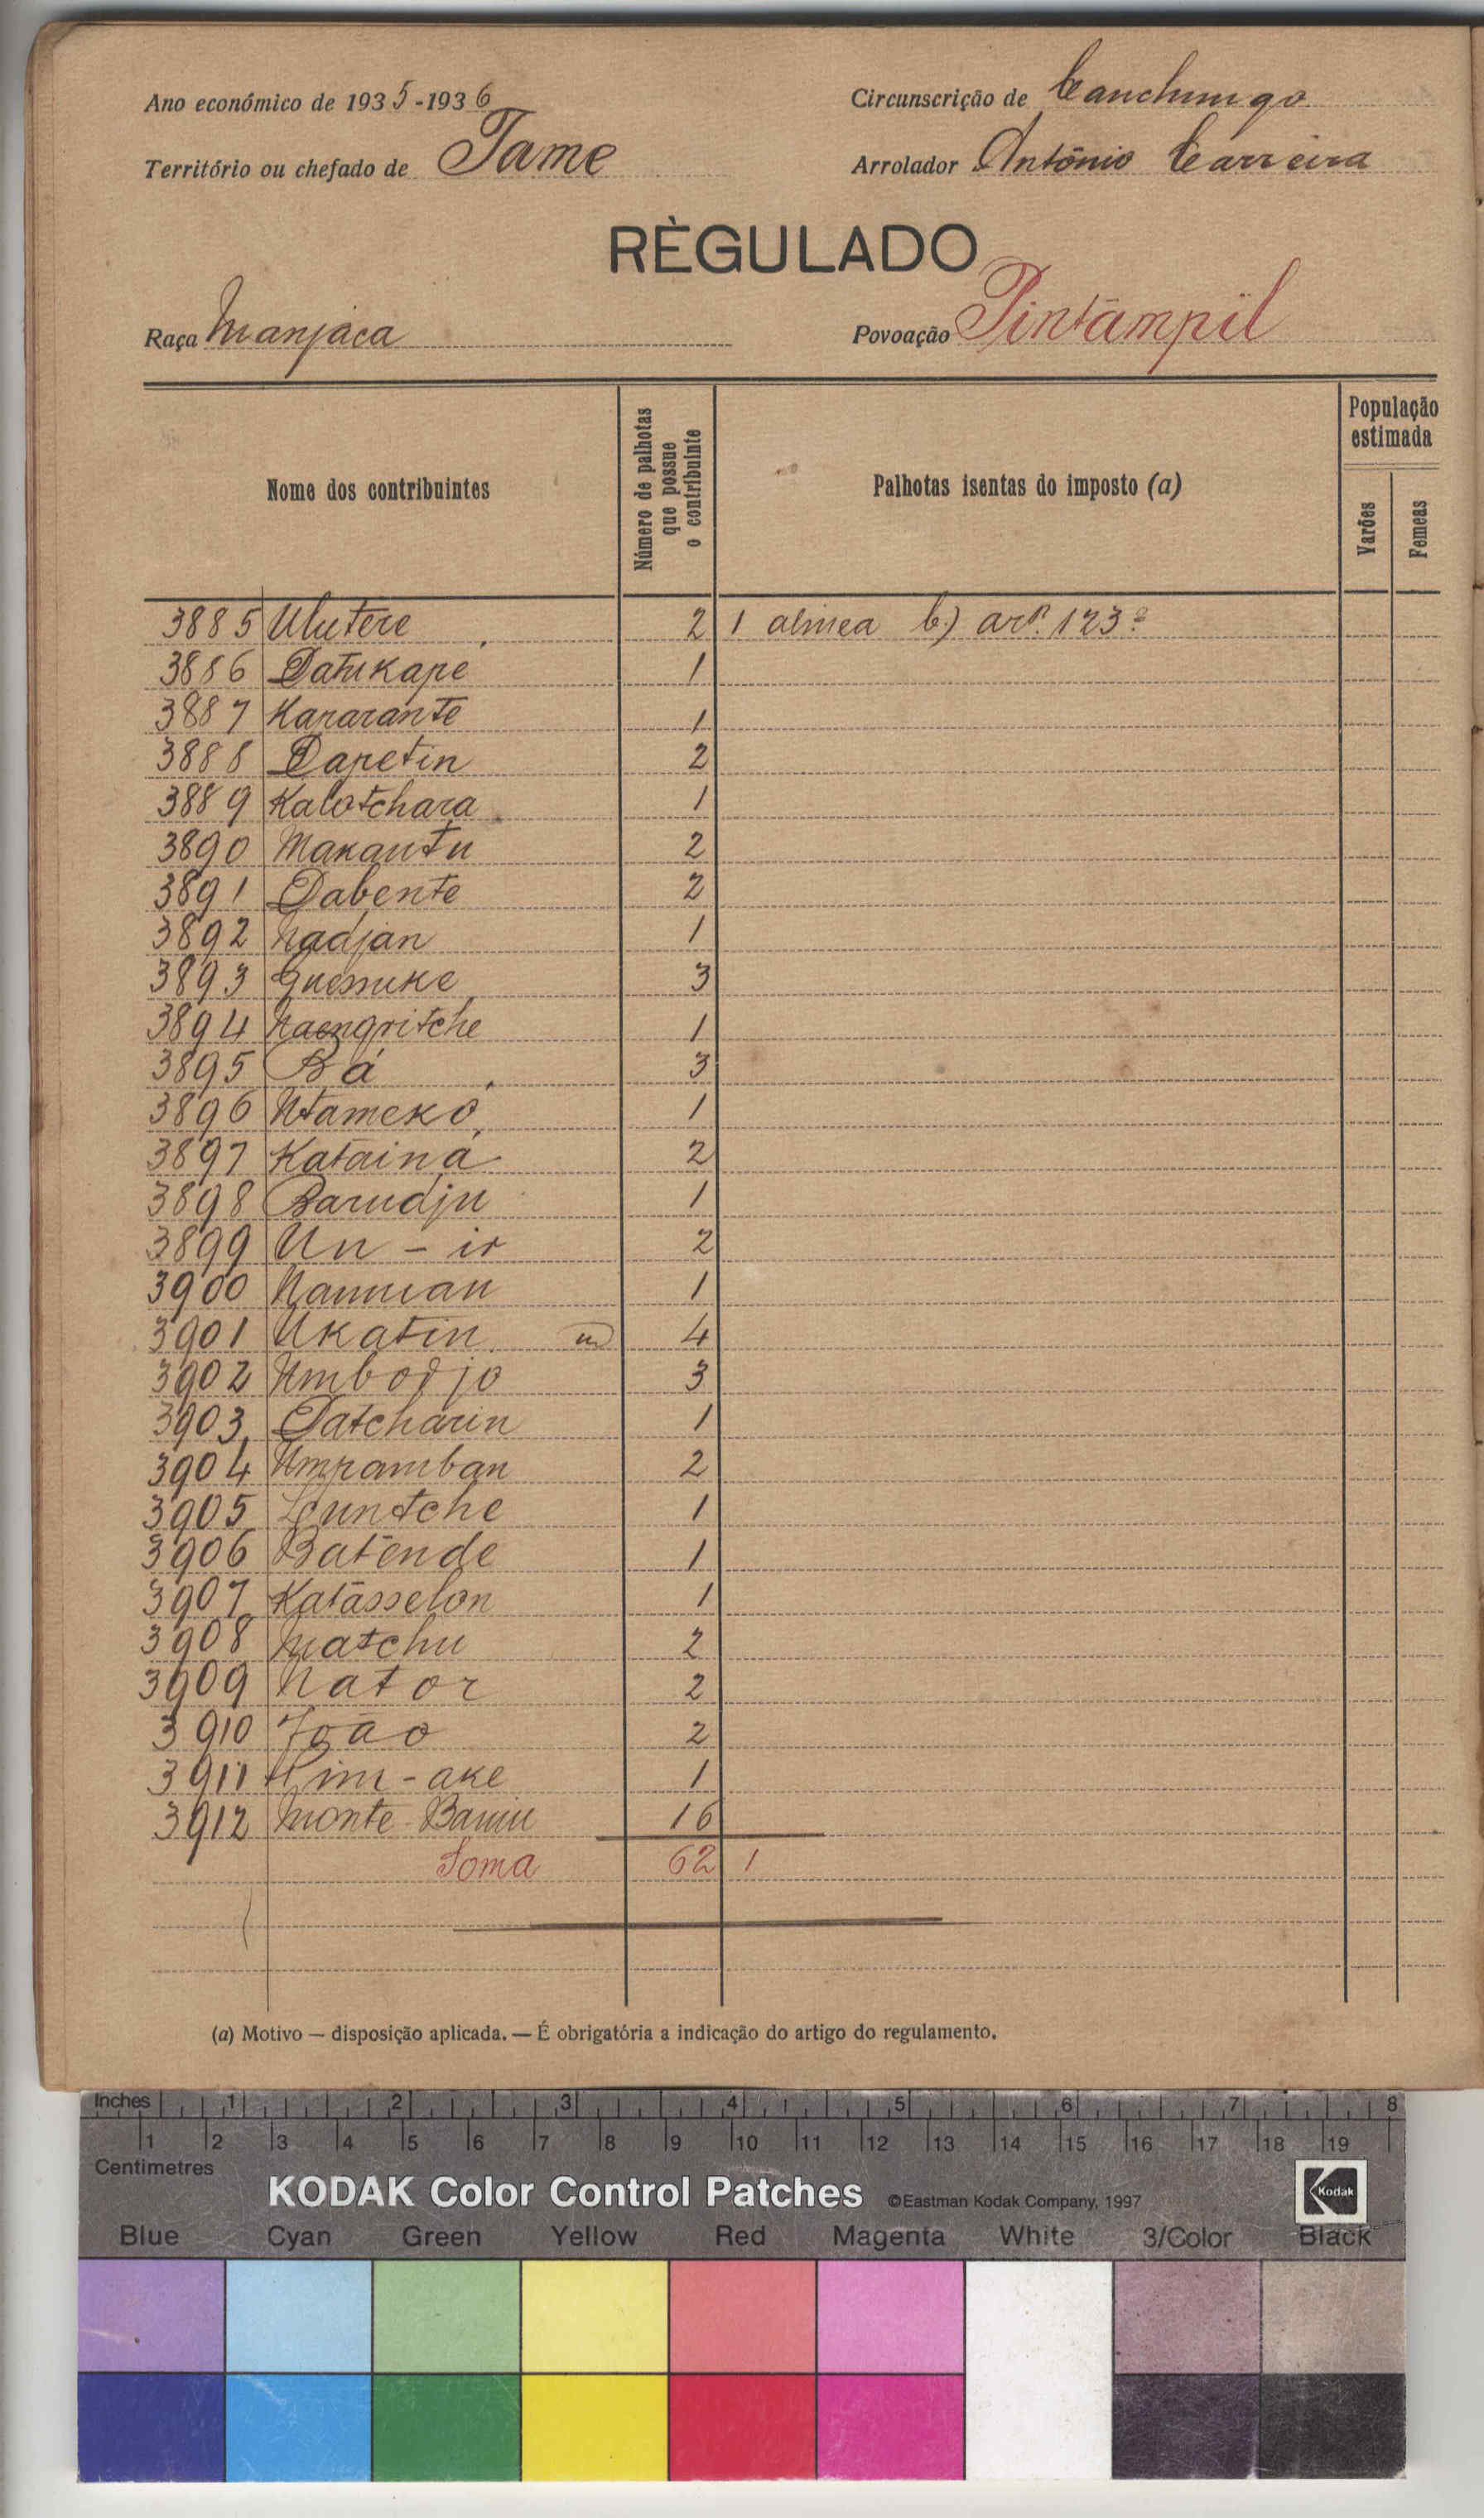 Ano económico de 1935-1936
Circunscrição de Canchungo
Território ou chefado de Tame
Arrolador António Carreira
RÈGULADO
Raça Manjaca
Povoação Pintampil
Nome dos contribuintes
Número de palhotas que possue o contribuinte
Palhotas isentas do imposto (a)
População estimada
Varões
Femeas
3885 Ulutere 2 1 alinea b) artº. 123º
3886 Datukape 1
3887 Kararante 1
3888 Dapetin 2
3889 Kalotchara 1
3890 Makantu 2
3891 Dabente 2
3892 Nadjan 1
3893 Guessuke 3
3894 1
3895 Bá 3
3896 Ntamekó 1
3897 Katainá 2
3898 Barudju 1
3899 Un - ir 2
3900 1
3901 Ukatin 4
3902 Umbodjo 3
3903 Datcharin 1
3904 Umpamban 2
3905 1
3906 Batende 1
3907 Katásselon 1
3908 Matchu 2
3909 Nator 2
3910 João 2
3911 1
3912 Monte Baniu 16
Soma 62 1
(a) Motivo — disposição aplicada. — É obrigatória a indicação do artigo do regulamento.
Inches 1 2 3 4 5 6 7 8
1 2 3 4 5 6 7 8 9 10 11 12 13 14 15 16 17 18 19
Centimetres
KODAK Color Control Patches ©Eastman Kodak Company, 1997 Kodak
Blue Cyan Green Yellow Red Magenta White 3/Color Black